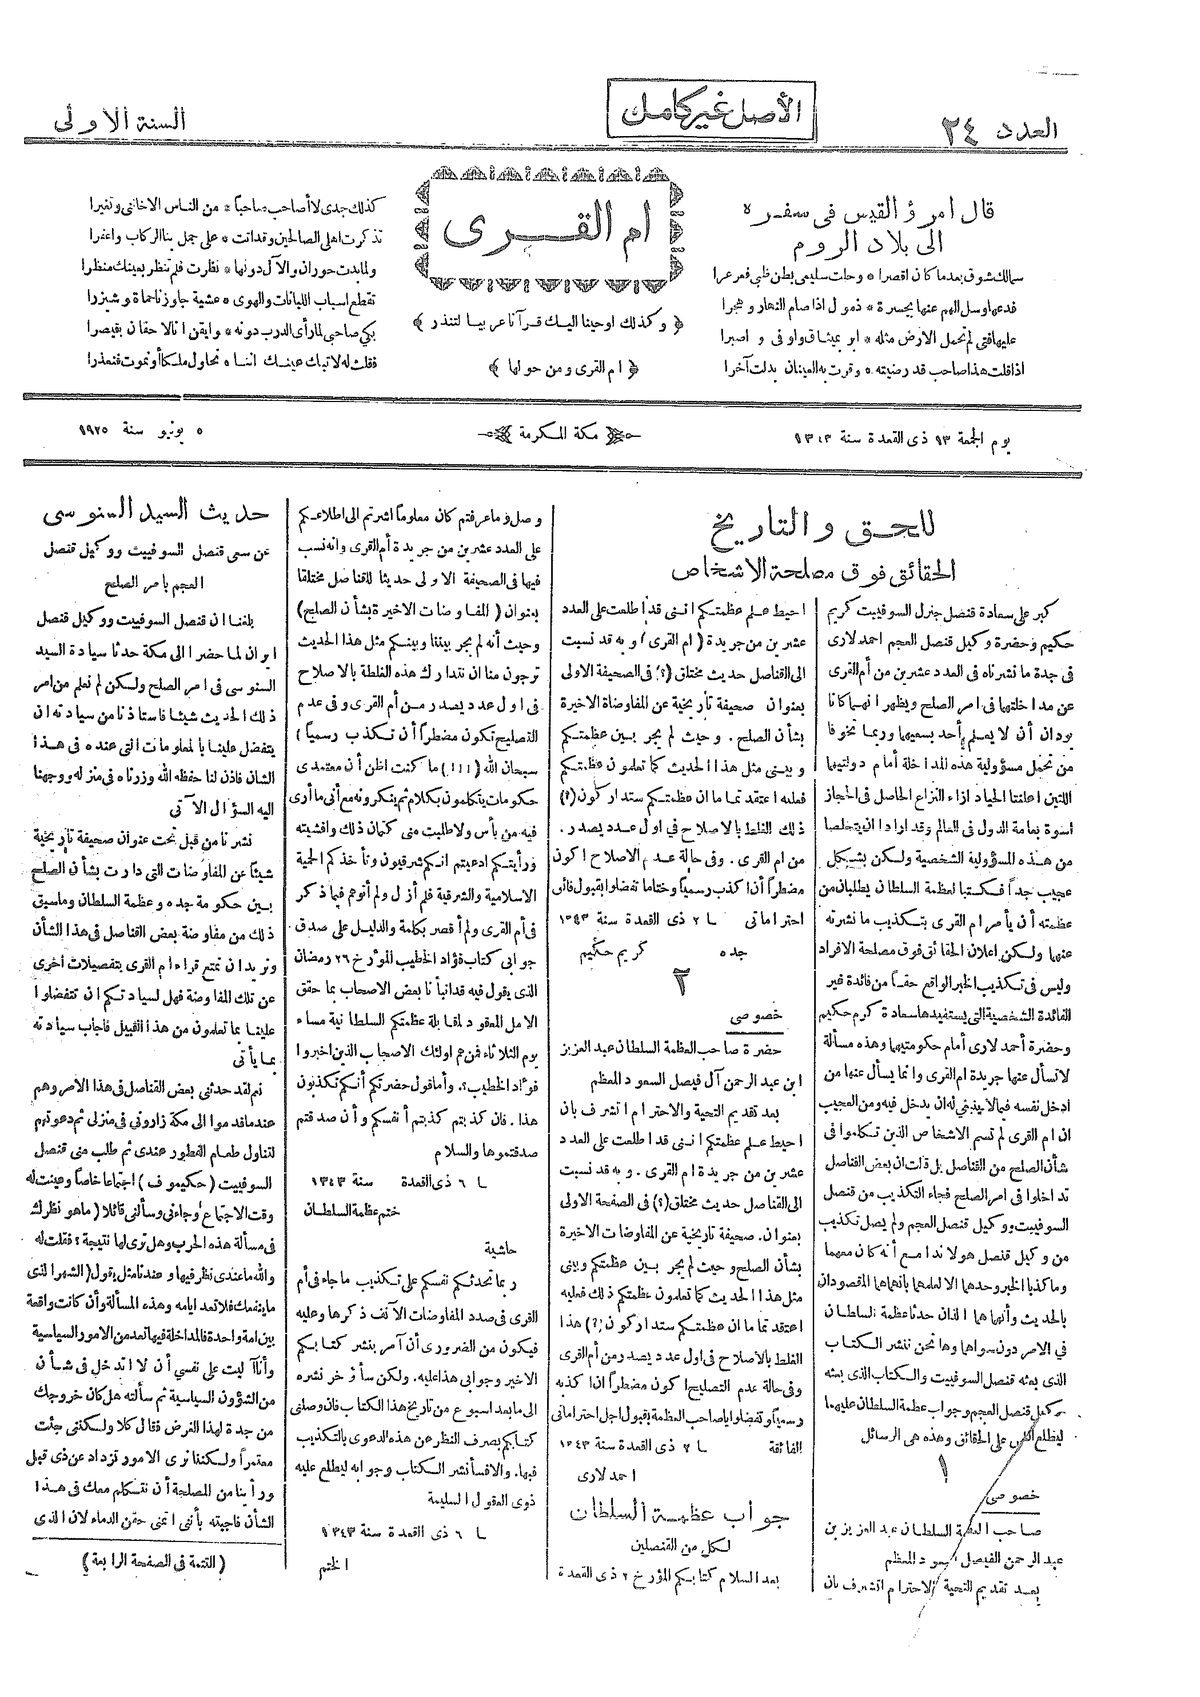 العدد ٢٤
الأصل غير كامل
السنة الاولى
قال امرؤ القيس فى سفره
الى بلاد الروم
سمالك شوق بعدما كان اقصرا * وحلت سليمى بطن ظبي فعرعرا
فدعها وسل الهم عنها بجسرة * ذمول اذا صام النهار وهجرا
عليها فتى لم تحمل الارض مثله * ابر بميثاق واوفى واصبرا
اذا قلت هذا صاحب قد رضيته * وقرت به العينان بدلت آخرا
ام القرى
﴿ وكذلك اوحينا اليك قرآنا عربيا لتنذر ﴾
﴿ ام القرى ومن حولها ﴾
كذلك جدى لا أصاحب صاحباً * من الناس الا خاننى وتغيرا
تذكرت اهلى الصالحين وقد اتت * على جمل بنا الركاب واعفرا
ولما بدت حوران والآل دونها * نظرت فلم تنظر بعينك منظرا
تقطع اسباب اللبانات والهوى * عشية جاوزنا حماة وشيزرا
بكى صاحبي لما رأى الدرب دونه * وايقن انا لاحقان بقيصرا
فقلت له لا تبك عينك انما * نحاول ملكا أو نموت فنعذرا
يوم الجمعة ١٣ ذى القعدة سنة ١٣٤٣
مكة المكرمة
٥ يونيو سنة ١٩٢٥
للحق والتاريخ
الحقائق فوق مصلحة الاشخاص
كبر على سعادة قنصل جنرل السوفييت كريم
حكيم وحضرة وكيل قنصل العجم احمد لارى
فى جدة ما نشرناه فى العدد عشرين من أم القرى
عن مداخلتها فى امر الصلح ويظهر انهما كانا
يودان أن لا يعلم أحد بسعيها وربما تخوفا
من تحمل مسؤولية هذه المداخلة أمام دولتيهما
اللتين اعلنتا الحياد ازاء النزاع الحاصل فى الحجاز
اسوة بعامة الدول فى العالم وقد ارادا ان يتخلصا
من هذه المسؤولية الشخصية ولكن بشكل
عجيب جداً فكتبا لعظمة السلطان يطلبان من
عظمته أن يأمر ام القرى بتكذيب ما نشرته
عنهما ولكن اعلان الحقائق فوق مصلحة الافراد
وليس فى تكذيب الخبر الواقع حقاً من فائدة غير
الفائدة الشخصية التى يستفيدها سعادة كرم حكيم
وحضرة أحمد لارى أمام حكومتيهما وهذه مسألة
لا تسأل عنها جريدة ام القرى وانما يسأل عنها من
ادخل نفسه فيما لا ينبغي له ان يدخل فيه ومن العجيب
ان ام القرى لم تسم الاشخاص الذين تكلموا فى
شأن الصلح من القناصل بل قالت ان بعض القناصل
تداخلوا فى امر الصلح فجاء التكذيب من قنصل
السوفييت ووكيل قنصل العجم ولم يصل تكذيب
من وكيل قنصل هولاندا مع أنه كان معهما
وما كذبا الخبر وحدهما الا لعلمهما بانهما هما المقصودان
بالحديث وأنهما هما اللذان حدثا عظمة السلطان
في الامر دون سواهما وها نحن ننشر الكتاب
الذى بعثه قنصل السوفييت والكتاب الذى بعثه
وكيل قنصل العجم وجواب عظمة السلطان عليهما
ليطلع الناس على الحقائق وهذه هى الرسائل
١
خصوصى
صاحب العظمة السلطان عبد العزيز بن
عبد الرحمن الفيصل السعود المعظم
بعد تقديم التحية والاحترام اتشرف بان
احيط علم عظمتكم اننى قد اطلعت على العدد
عشرين من جريدة ( ام القرى ) وبه قد نسبت
الى القناصل حديث مختلق (؟) فى الصحيفة الاولى
بعنوان صحيفة تاريخية عن المفاوضاة الاخيرة
بشأن الصلح . وحيث لم يجر بين عظمتكم
وبينى مثل هذا الحديث كما تعلمون عظمتكم
فعليه اعتقد تماما ان عظمتكم ستداركون (؟)
ذلك الغلط بالاصلاح في اول عدد يصدر .
من ام القرى . وفى حالة عدم الاصلاح اكون
مضطراً أن اكذب رسمياً وختاما تفضلوا بقبول فائق
احتراماتى ما ٢ ذى القعدة سنة ١٣٤٣
جده كريم حكيم
٢
خصوصى
حضرة صاحب العظمة السلطان عبد العزيز
ابن عبد الرحمن آل فيصل السعود المعظم
بعد تقديم التحية والاحترام اتشرف بان
احيط علم عظمتكم اننى قد اطلعت على العدد
عشرين من جريدة ام القرى . وبه قد نسبت
الى القناصل حديث مختلق (؟) فى الصفحة الاولى
بعنوان . صحيفة تاريخية عن المفاوضات الاخيرة
بشأن الصلح وحيث لم يجر بين عظمتكم وبينى
مثل هذا الحديث كما تعلمون عظمتكم ذلك فعليه
اعتقد تماما ان عظمتكم ستداركون (؟) هذا
الغلط بالاصلاح فى اول عدد يصدر من أم القرى
وفى حالة عدم التصليح اكون مضطراً ان اكذبه
رسمياً وتفضلوا ياصاحب العظمة بقبول اجل احتراماتى
الفائقة ما ٢ ذى القعدة سنة ١٣٤٣
احمد لارى
جواب عظمة السلطان
لكل من القنصلين
بعد السلام كتابكم المؤرخ ٢ ذى القعدة
وصل وما عرفتم كان معلوماً اشرتم الى اطلاعكم
على العدد عشرين من جريدة أم القرى وانه نسب
فيها فى الصحيفة الاولى حديثا للقناصل مختلقا
بعنوان ( المفاوضات الاخيرة بشأن الصلح )
وحيث أنه لم يجر بيننا وبينكم مثل هذا الحديث
ترجون منا ان نتدارك هذه الغلطة بالاصلاح
فى اول عدد يصدر من أم القرى وفى عدم
التصليح تكون مضطراً أن تكذب رسمياً )
سبحان الله (!!!) ما كنت اظن أن معتمدى
حكومات يتكلمون بكلام ثم ينكرونه مع أنى ما أرى
فيه من بأس ولا طلبت منى كتمان ذلك وافشيته
ورأيتكم ادعيتم انكم شرقيون وتأخذكم الحمية
الاسلامية والشرقية فلم أزل ولم أتوهم فيما ذكر
فى أم القرى ولم أقصر بكلمة والدليل على صدق
جوابى كتاب فؤاد الخطيب المؤرخ ٢٦ رمضان
الذى يقول فيه قد انبأنا بعض الاصحاب بما حقق
الامل المعقود لمقابلة عظمتكم السلطانية مساء
يوم الثلاثاء فمن هم اولئك الاصحاب الذين اخبروا
فؤاد الخطيب ؟. وأما قول حضرتكم أنكم تكذبون
هذا . فان كذبتم كذبتم أنفسكم وأن صدقتم
صدقتموها والسلام
ما ٦ ذى القعدة سنة ١٣٤٣
ختم عظمة السلطان
حاشية
ربما تحدثكم نفسكم على تكذيب ما جاء فى أم
القرى فى صدد المفاوضات الآنف ذكرها وعليه
فيكون من الضرورى أن آمر بنشر كتابكم
الاخير وجوابى هذا عليه . ولكن سأؤخر نشره
الى ما بعد اسبوع من تاريخ هذا الكتاب فان وصلنى
كتابكم بصرف النظر عن هذه الدعوى بالتكذيب
فبها . والا فسأنشر الكتاب وجوابه ليطلع عليه
ذوى العقول السليمة
ما ٦ ذى القعدة سنة ١٣٤٣
الختم
حديث السيد السنوسى
عن سعى قنصل السوفييت ووكيل قنصل
العجم بامر الصلح
بلغنا ان قنصل السوفييت ووكيل قنصل
ايران لما حضرا الى مكة حدثا سيادة السيد
السنوسى فى امر الصلح ولكن لم نعلم من امر
ذلك الحديث شيئا فاستاذنا من سيادته ان
يتفضل علينا بالمعلومات التى عنده فى هذا
الشان فاذن لنا حفظه الله وزرناه فى منزله ووجهنا
اليه السؤال الآتى
نشرنا من قبل تحت عنوان صحيفة تاريخية
شيئاً عن المفاوضات التى دارت بشأن الصلح
بين حكومة جده وعظمة السلطان وما سبق
ذلك من مفاوضة بعض القناصل فى هذا الشأن
ونريد ان نمتع قراء ام القرى بتفصيلات اخرى
عن تلك المفاوضة فهل لسيادتكم ان تتفضلوا
علينا بما تعلمون من هذا القبيل فاجاب سيادته
بما يأتى
نعم لقد حدثنى بعض القناصل فى هذا الامر وهم
عند ما قدموا الى مكة زارونى فى منزلى ثم دعوتهم
لتناول طعام الفطور عندى ثم طلب منى قنصل
السوفييت ( حكيموف ) اجتماعا خاصاً وعينت له
وقت الاجتماع وجاءنى وسألنى قائلا ( ما هو نظرك
فى مسألة هذه الحرب وهل ترى لها نتيجة ؟ فقلت له
والله ما عندى نظر فيها وعندنا مثل يقول ( الشهر الذى
ما ينفعك فلا تعد ايامه وهذه المسألة وأن كانت واقعة
بين امة واحدة فالمداخلة فيها تعد من الامور السياسية
وأنا آليت على نفسى أن لا اتدخل فى شأن
من الشؤون السياسية ثم سألته هل كان خروجك
من جدة لهذا الغرض فقال كلا ولكننى جئت
معتمراً ولكننا نرى الامور تزداد عن ذى قبل
ورأينا من المصلحة أن نتكلم معك فى هذا
الشأن فاجبته بأننى اتمنى حقن الدماء لان الذى
( التتمة فى الصفحة الرابعة )